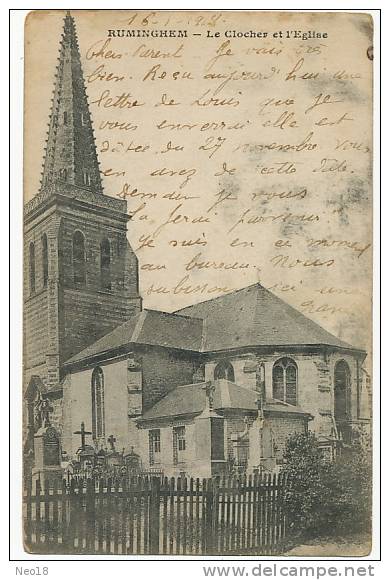 16-1-
RUMINGHEM – Le Clocher et l'Eglise
Cher Parent Je vais très
bien. Reçu aujourd'hui une
lettre de Louis que je
vous enverrai elle est
datée du 27 novembre vous
en avez de cette date.
Demain je vous
la ferai parvenir
Je suis en ce moment
au bureau. Nous
subissons ici un
Neo18
http://www.delcampe.net